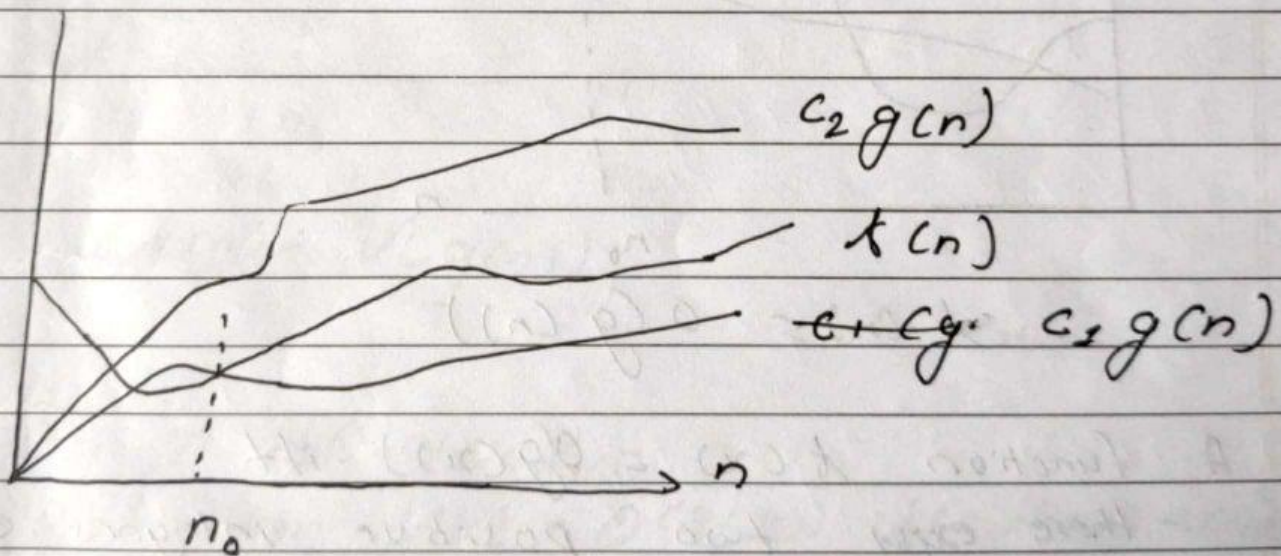 c₂ g(n)
t(n)
c₁ g(n)
n
n₀